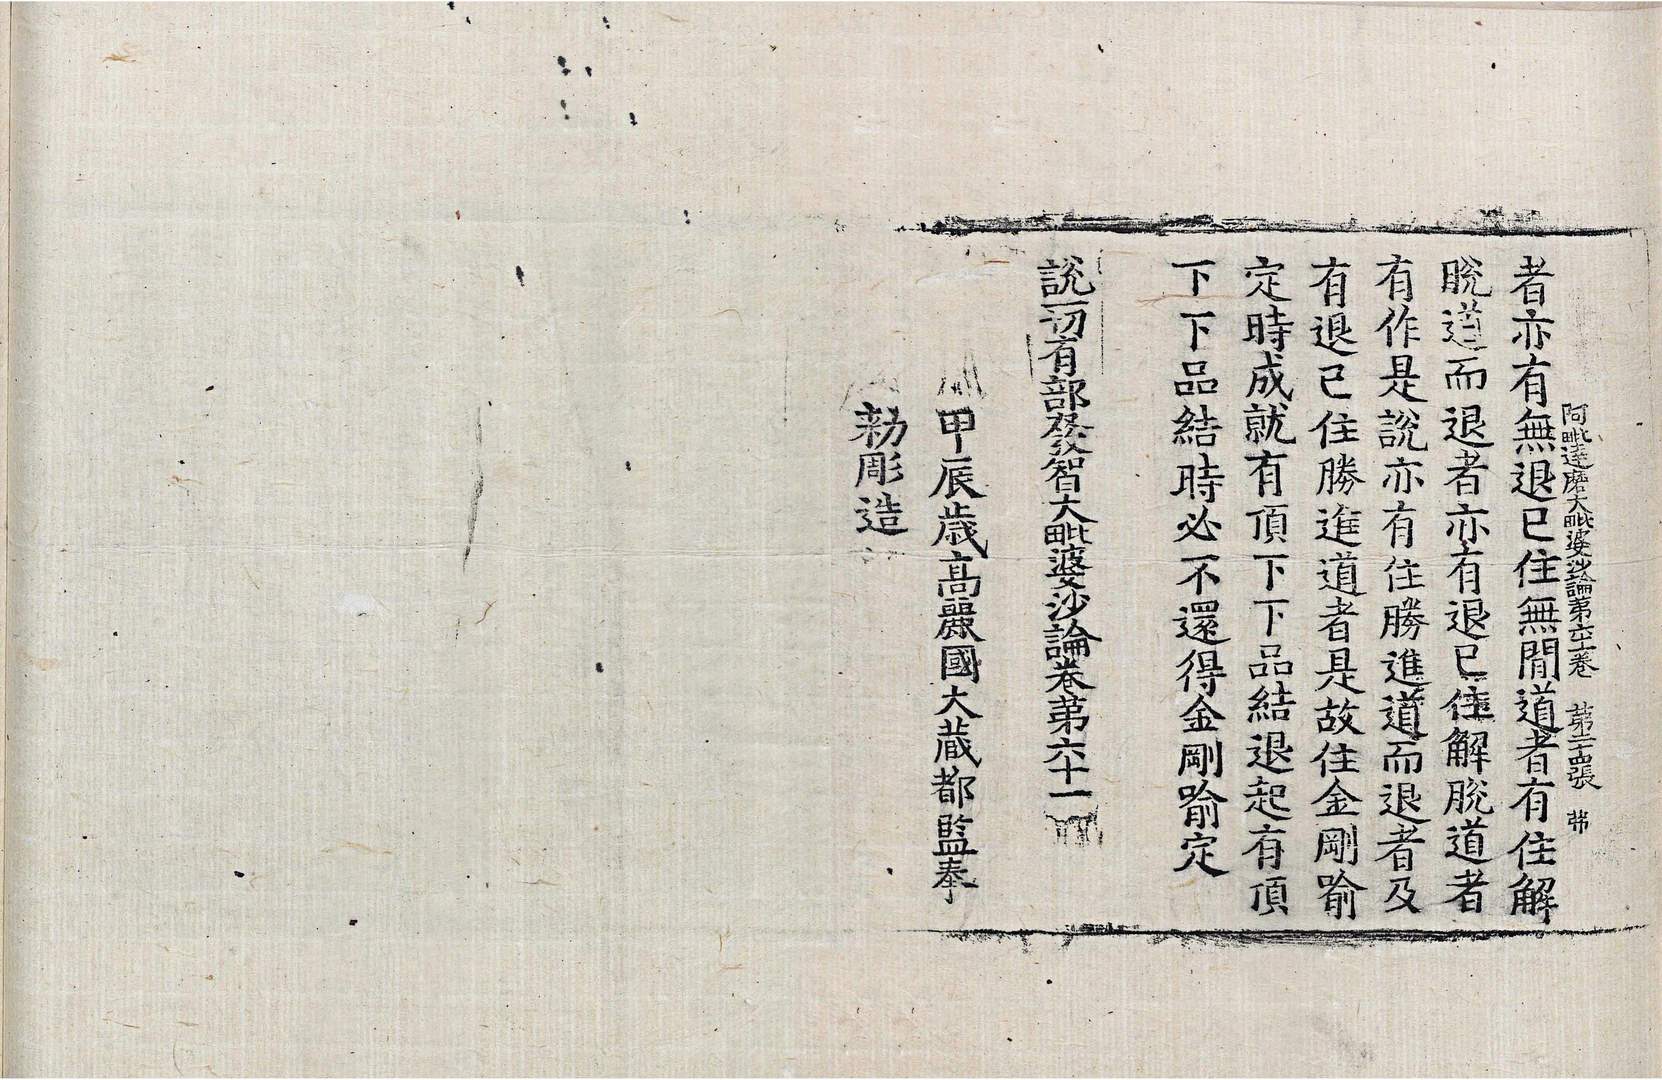 阿毗達磨大毗婆沙論第六十一卷 第二十四張 弗
者亦有無退已住無閒道者有住解
脫道而退者亦有退已住解脫道者
有作是說亦有住勝進道而退者及
有退已住勝進道者是故住金剛喻
定時成就有頂下下品結退起有頂
下下品結時必不還得金剛喻定
說一切有部發智大毗婆沙論卷第六十一
甲辰歲高麗國大藏都監奉
勑彫造